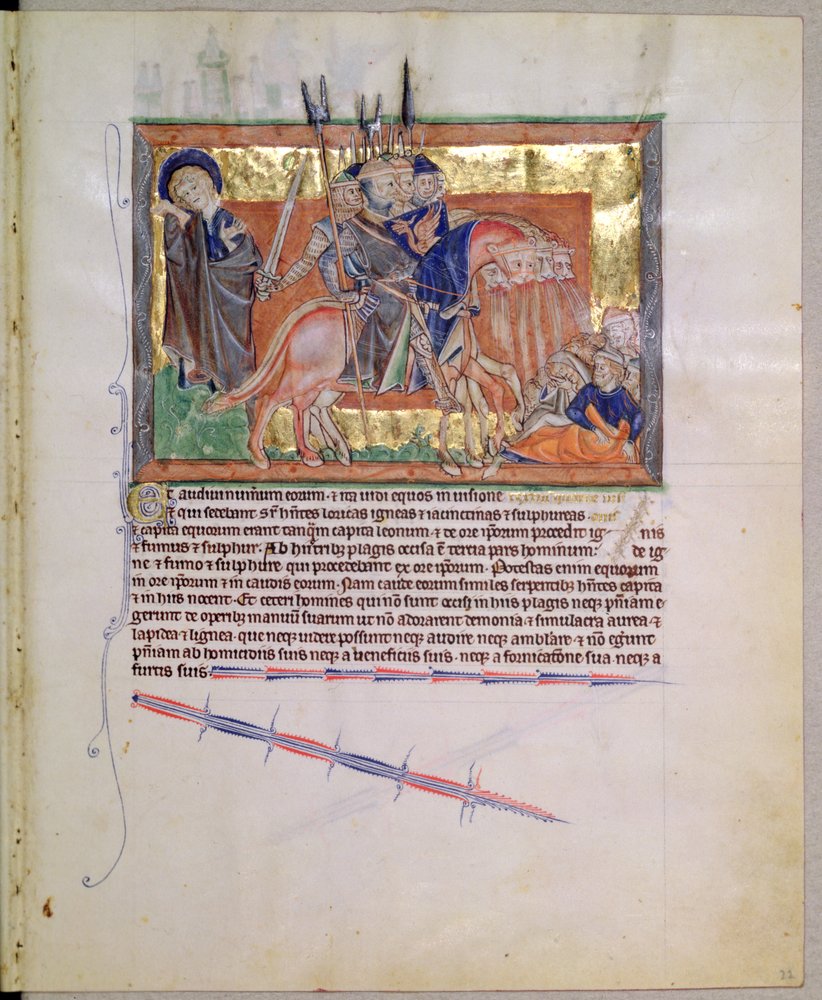 Et audiui num̄um eorum · ⁊ ita uidi equos in uisione
⁊ qui sedebant sr̄ hn̄tes loricas igneas ⁊ iacinctinas ⁊ sulphureas ·
⁊ capita equorum erant tanq̄m capita leonum · ⁊ de ore ip̄orum procedit ig nis
⁊ fumus ⁊ sulphur · Ab hiis tribꝫ plagis occisa ē tercia pars hominum · de ig
ne ⁊ fumo ⁊ sulphure qui procedebant ex ore ip̄orum · Potestas enim equorum
in ore ip̄orum ⁊ in caudis eorum · Nam caude eorum similes serpentibꝫ hn̄tes capita
⁊ in hiis nocent · Et ceteri homines qui nō sunt occisi in hiis plagis neqꝫ pn̄iam e
gerunt de operibꝫ manuū suarum ut nō adorarent demonia ⁊ simulacra aurea ⁊
lapidea ⁊ lignea · que neqꝫ uidere possunt neqꝫ audire neqꝫ amblare · ⁊ nō egerunt
pn̄iam ab homicidiis suis neqꝫ a beneficiis suis · neqꝫ a fornicatōne sua neqꝫ a
furtis suis ·
22